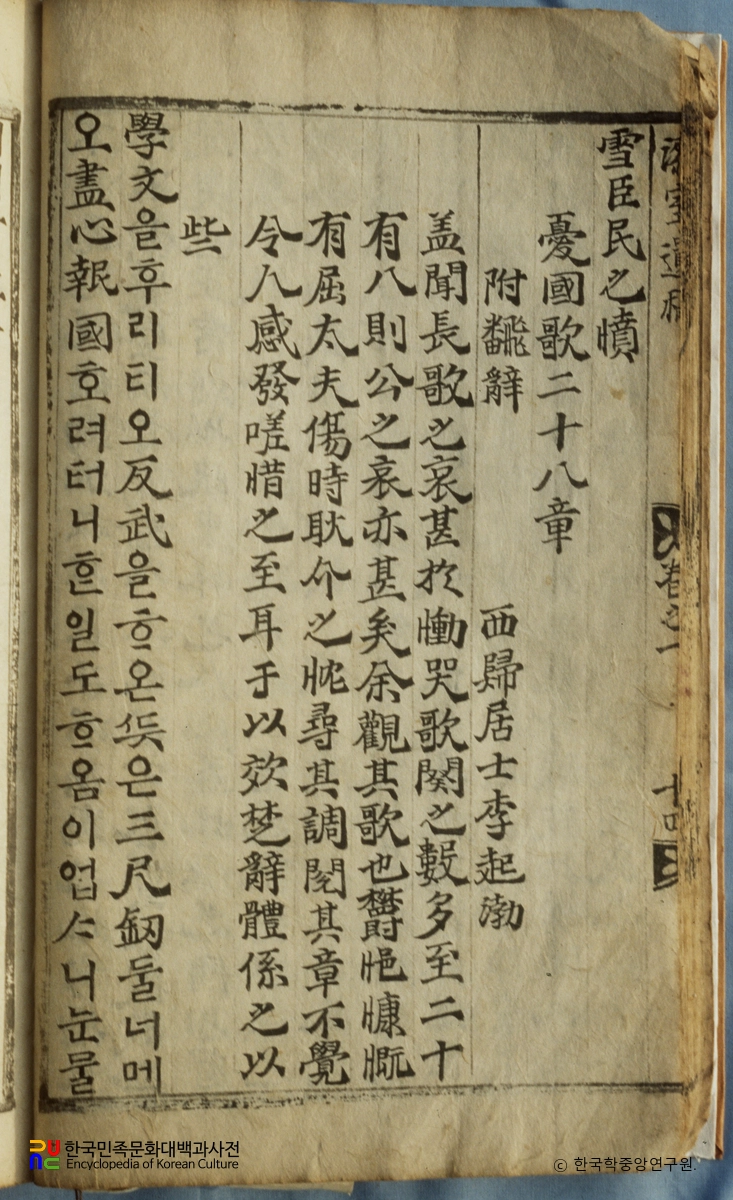 漆室遺稿 卷之一 十四
雪臣民之憤
憂國歌二十八章
附飜辭 西歸居士李起渤
盖聞長歌之哀甚於慟哭歌闋之數多至二十
有八則公之哀亦甚矣余觀其歌也欝悒慷慨
有屈太夫傷時耿介之忱尋其調閱其章不覺
令人感發嗟惜之至耳于以效楚辭體係之以
些
學文을후리티오反武을ᄒᆞ온ᄯᅳᆺ은三尺釼둘너메
오盡心報國호려터니ᄒᆞᆫ일도ᄒᆞ옴이업ᄉᆞ니눈물
한국민족문화대백과사전
Encyclopedia of Korean Culture
ⓒ 한국학중앙연구원.